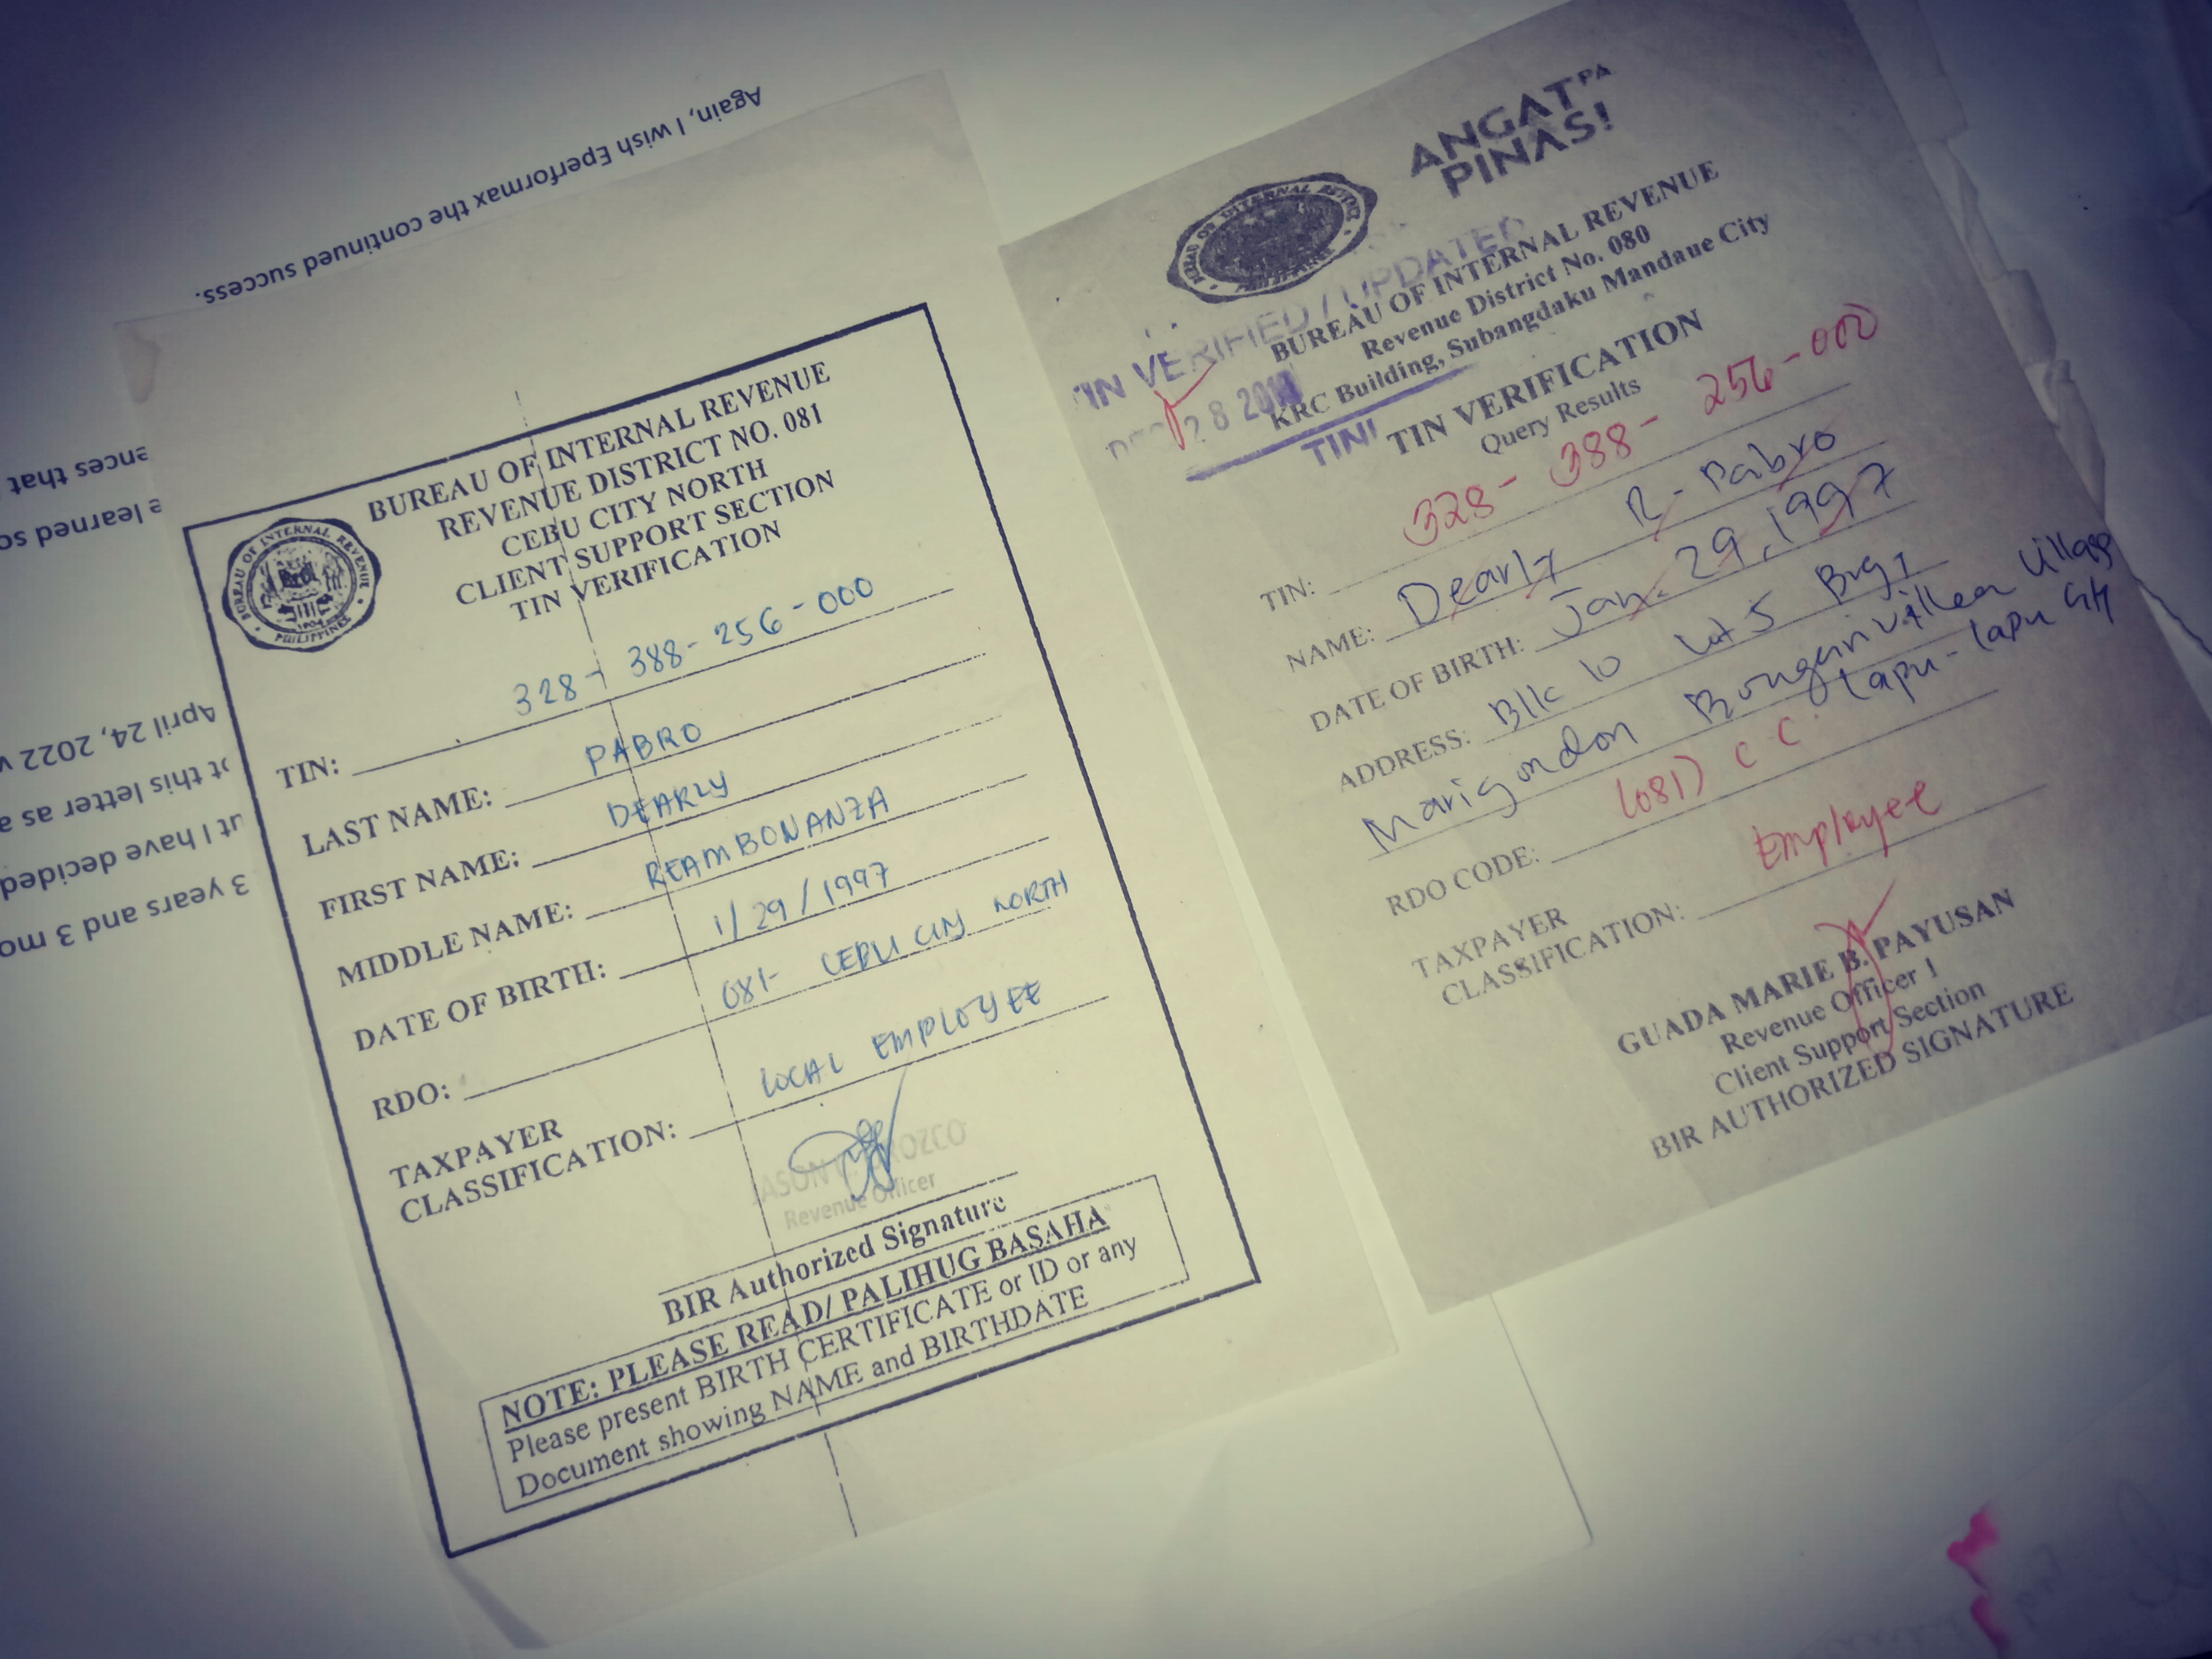 Again, I wish Eperformax the continued success.
ences that
e learned so
April 24, 2022
this letter as a
ut I have decided
3 years and 3 mo
BUREAU OF INTERNAL REVENUE
REVENUE DISTRICT NO. 081
CEBU CITY NORTH
CLIENT SUPPORT SECTION
TIN VERIFICATION
BUREAU OF INTERNAL REVENUE
PHILIPPINES
TIN: 328-388-256-000
LAST NAME: PABRO
FIRST NAME: DEARLY
MIDDLE NAME: REAMBONANZA
DATE OF BIRTH: 1/29/1997
RDO: 081- CEBU CITY NORTH
TAXPAYER
CLASSIFICATION: LOCAL EMPLOYEE
Revenue Officer
BIR Authorized Signature
NOTE: PLEASE READ/ PALIHUG BASAHA
Please present BIRTH CERTIFICATE or ID or any
Document showing NAME and BIRTHDATE
ANGAT PA
PINAS!
TIN VERIFIED / UPDATED
BUREAU OF INTERNAL REVENUE
Revenue District No. 080
KRC Building, Subangdaku Mandaue City
DEC 28
TIN VERIFICATION
Query Results
TIN: 328-388-256-000
NAME: Dearly R. Pabro
DATE OF BIRTH: Jan. 29, 1997
ADDRESS: Blk 10 Lot 5 Brgy
Marigondon Bougainvillea Village
Lapu-lapu City
RDO CODE: (081) CC
TAXPAYER
CLASSIFICATION: Employee
GUADA MARIE B. PAYUSAN
Revenue Officer I
Client Support Section
BIR AUTHORIZED SIGNATURE